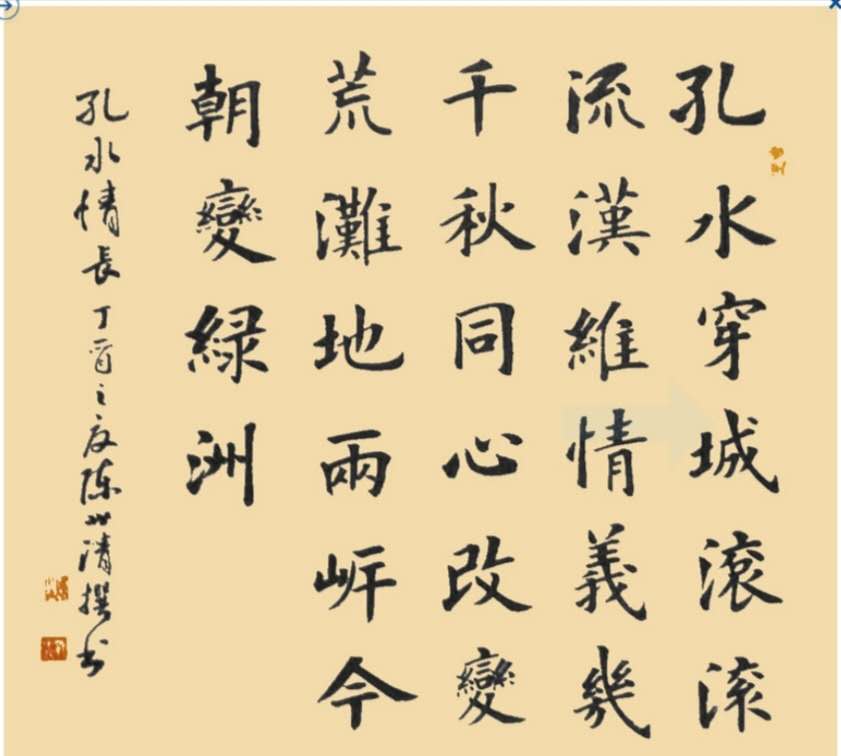 孔水穿城滾滾
流漢維情義幾
千秋同心改變
荒灘地兩岍今
朝變緑洲
孔水情長丁酉之夏陈世清撰书